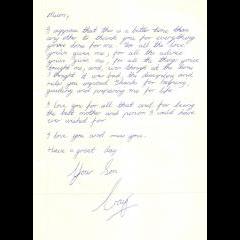 Mum,
I suppose that this is a better time than
any other to thank you for everything
you've done for me. For all the love
you've given me, for all the advice
you've given me, for all the things you've
taught me, and, even though at the time
I thought it was bad, the discipline and
rules you required. Thanks for helping,
guiding and preparing me for life.
I love you for all that and for being
the best mother and person I could have
ever wished for
I love you and miss you.
Have a great day
Your Son